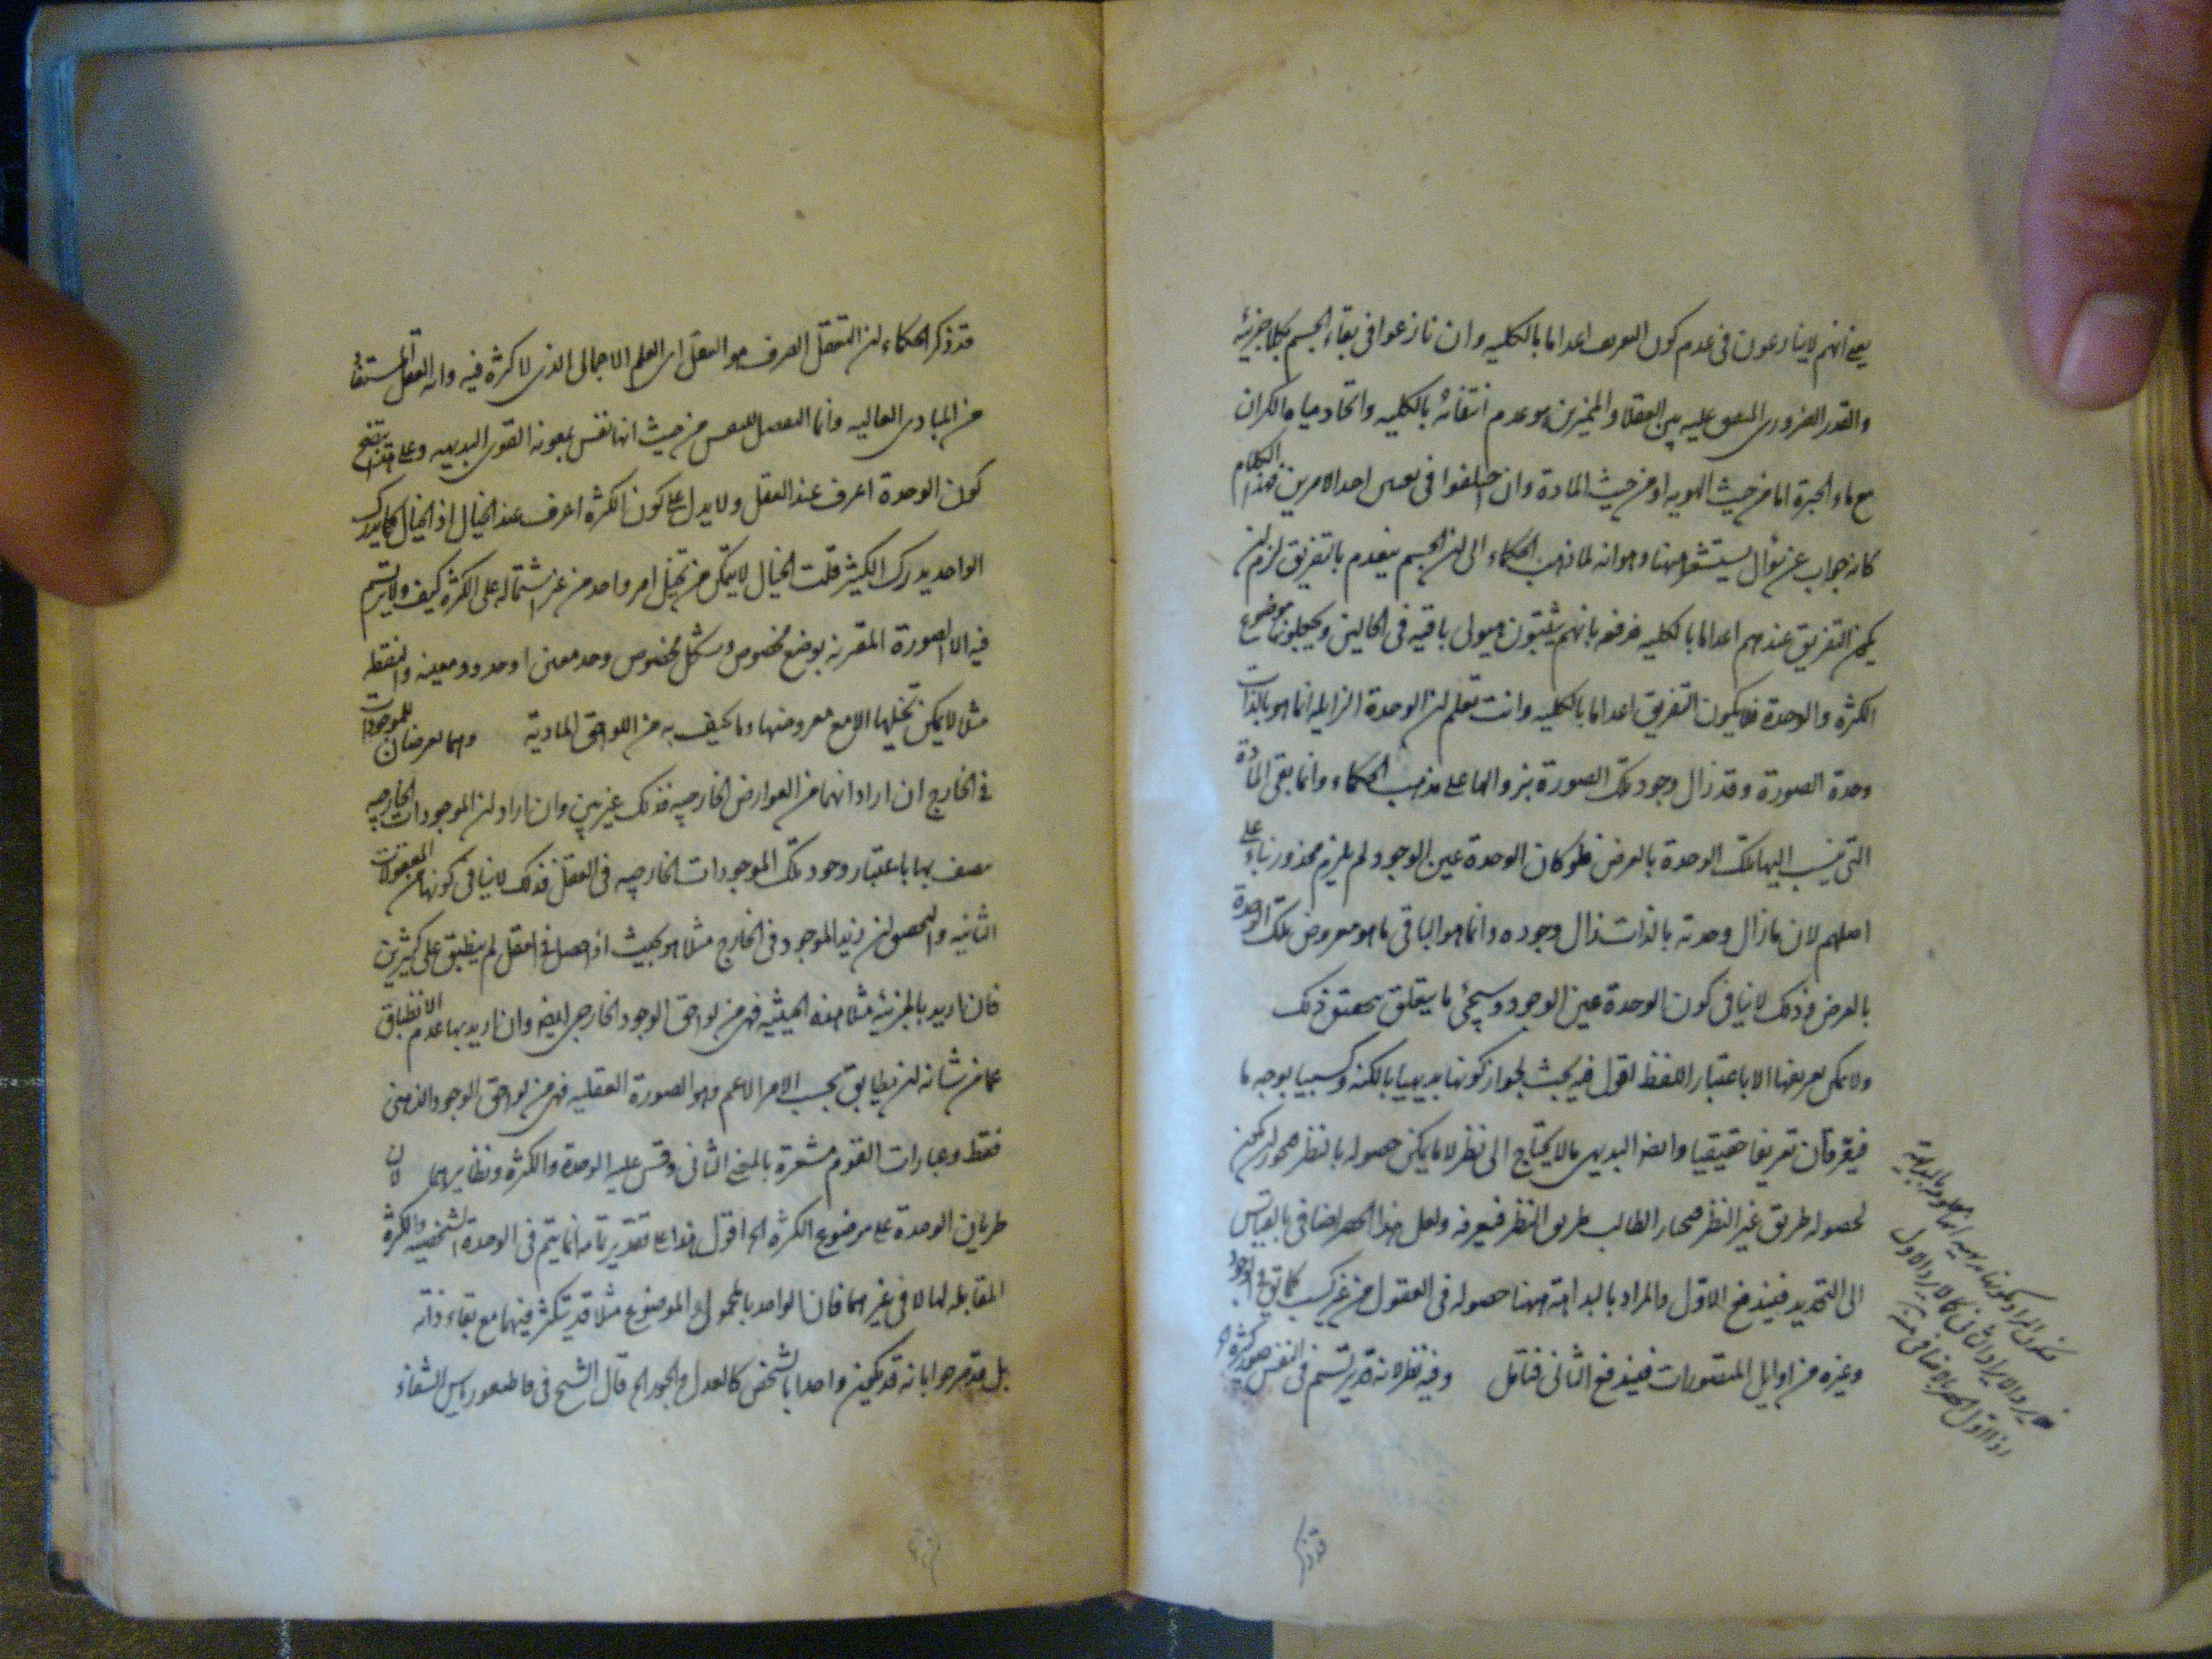 يعنى انهم لا ينازعون فى عدم كون التفريق اعداما بالكليه وان نازعوا فى بقاء الجسم بكلا جزئيه
والقدر الضرورى المتفق عليه بين العقلاء والمميزين هو عدم انتفائه بالكليه واتحاد مياه الكيزان
مع ماء الجرة اما من حيث الهويه او من حيث المادة وان اختلفوا فى تعيين احد الامرين فهذا الكلام
كانه جواب عن سؤال يستشعر ههنا وهو انه لما ذهب الحكماء الى ان الجسم ينعدم بالتفريق لزم ان
يكون التفريق عندهم اعداما بالكليه فدفعه بانهم يثبتون هيولى باقيه فى الحالين ويجعلونها موضوع
الكثرة والوحدة فلا يكون التفريق اعداما بالكليه وانت تعلم ان الوحدة الزايله انما هو بالذات
وحدة الصورة وقد زال وجود تلك الصورة بزوالها على مذهب الحكماء وانما بقى المادة
التى ينسب اليها تلك الوحدة بالعرض فلو كان الوحدة عين الوجود لم يلزم محذور بناء على
اصلهم لان ما زال وحدته بالذات زال وجوده وانما هو الباقى ما هو معروض تلك الوحدة
بالعرض وذلك لا ينافى كون الوحدة عين الوجود وسيجئ ما يتعلق بتحقيق ذلك
ولا يمكن تعريفها الا باعتبار اللفظ اقول فيه بحث لجواز كونها بديهيا بالكنه وكسبيا بوجه ما
فيعرفان تعريفا حقيقيا وايضا البديهى ما لا يحتاج الى نظر لا ما يمكن حصوله بالنظر فيجوز ان يكون
لحصوله طريق غير النظر فيختار الطالب طريق النظر فيعرفه ولعل هذا الحصر اضافى بالقياس
الى التحديد فيندفع الاول والمراد بالبداهة ههنا حصوله فى العقول من غير كسب كما مر فى الوجود
وغيره من اوايل المتصورات فيندفع الثانى فتامل وفيه نظر لانه قد يرتسم فى النفس صور كثيرة الخ
قد ذكر
قد ذكر الحكماء ان التعقل الصرف هو العقل اى العلم الاجمالى الذى لا كثرة فيه وانه العقل المستفاد
من المبادى العاليه وانما التفصيل للنفس من حيث انها نفس بمعونة القوى البدنيه وعلى هذا يتضح
كون الوحدة اعرف عند العقل ولا يدل على كون الكثرة اعرف عند الخيال اذ الخيال كما يدرك
الواحد يدرك الكثير قلت الخيال لا يتمكن من تخيل امر واحد من غير اشتماله على الكثرة كيف ولا يرتسم
فيه الا الصورة المقترنه بوضع مخصوص وشكل مخصوص وحد معين او حدود معينه والنقطه
مثلا لا يمكن تخيلها الا مع معروضها وما يكيف به من اللواحق الماديه وهما يعرضان للموجودات
فى الخارج ان اراد انهما من العوارض الخارجيه فذلك غير بين وان اراد ان الموجودات الخارجيه
يتصف بها باعتبار وجود تلك الموجودات الخارجيه فى العقل فذلك لا ينافى كونها من المعقولات
الثانيه والتحقيق ان زيد الموجود فى الخارج مثلا هو بحيث اذا حصل فى العقل لم ينطبق على كثيرين
فان اريد بالجزئيه مثلا هذه الحيثيه فهى من لواحق الوجود الخارجى ايضا وان اريد بها عدم الانطباق
عما من شانه ان يطابق بحسب الامر الاعم وهو الصورة العقليه فهى من لواحق الوجود الذهنى
فقط وعبارات القوم مشعرة بالمعنى الثانى وقس عليه الوحدة والكثرة ونظايرهما لان
طريان الوحدة على موضوع الكثرة الخ اقول هذا على تقدير تمامه انما يتم فى الوحدة الشخصيه والكثرة
المقابله لها لا فى غيرهما فان الواحد بالمحمول او الموضوع مثلا قد يتكثر فيهما مع بقاء ذاته
بل قد صرحوا بانه قد يكون واحدا بالشخص كالعدل والجور الخ قال الشيخ فى قاطيغورياس الشفاء